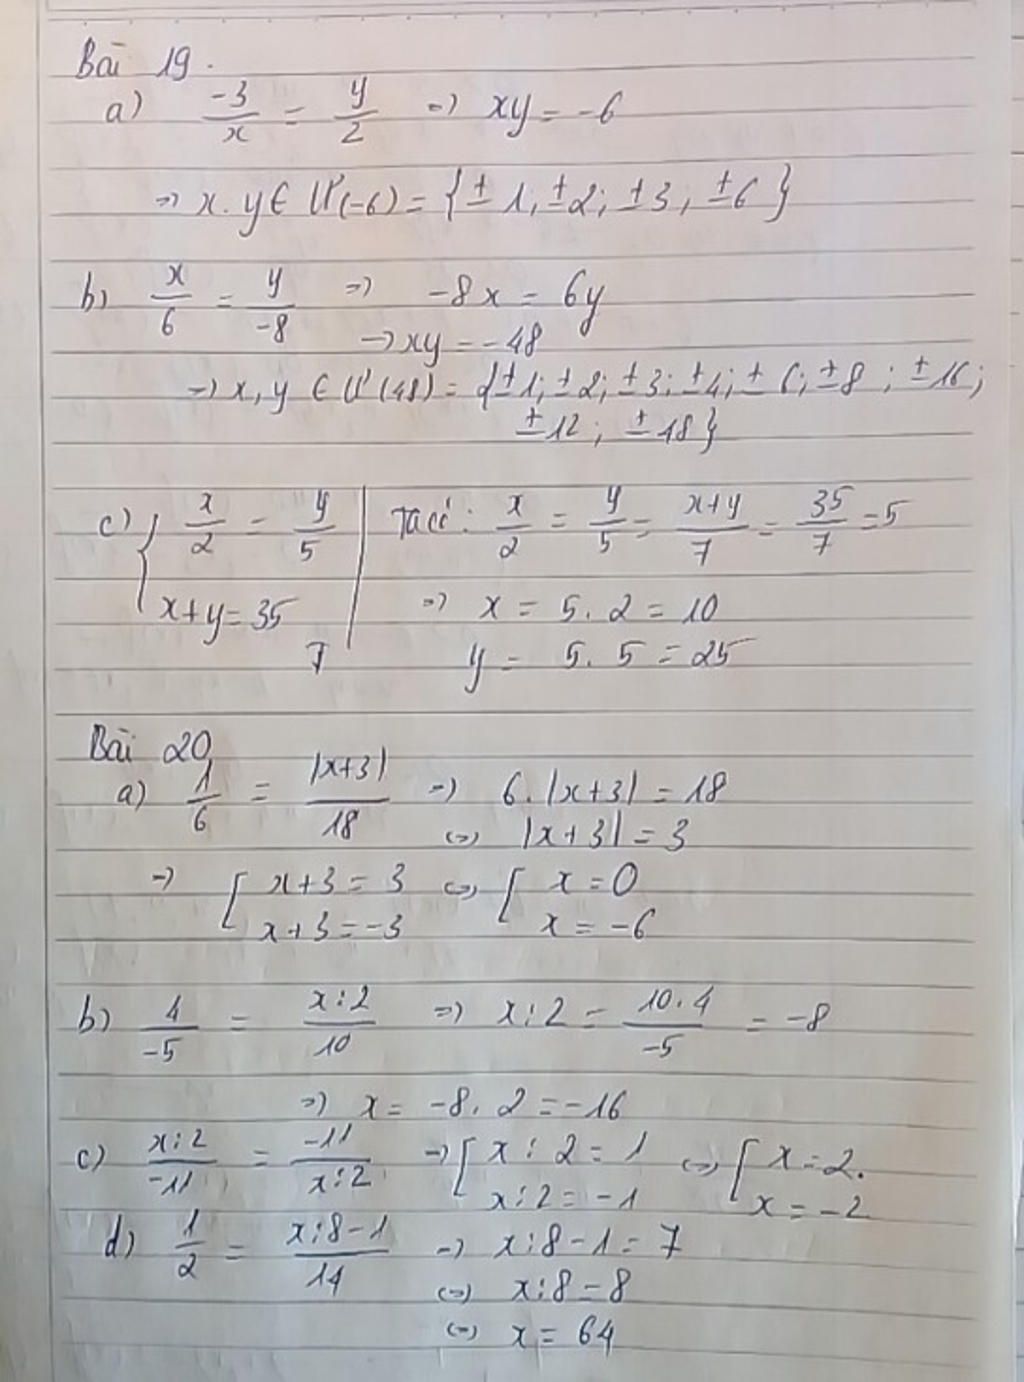 Bài 19.
a) -3/x = y/2 => xy = -6
=> x.y ∈ Ư(-6) = {± 1, ±2; ±3; ±6}
b) x/6 = y/-8 => -8x = 6y
-> xy = -48
=> x, y ∈ Ư(48) = {±1; ±2; ±3; ±4; ±6; ±8; ±16;
±12; ±18}
c) { x/2 = y/5 | Ta có: x/2 = y/5 = x+y/7 = 35/7 = 5
x+y = 35 => x = 5.2 = 10
7 y = 5.5 = 25
Bài 20
a) 1/6 = |x+3|/18 => 6.|x+3| = 18
<=> |x+3| = 3
=> [ x+3 = 3 <=> [ x = 0
x+3 = -3 x = -6
b) 4/-5 = x:2/10 => x:2 = 10.4/-5 = -8
=> x = -8.2 = -16
c) x:2/-11 = -11/x:2 => [ x:2 = 1 <=> [ x = 2.
x:2 = -1 x = -2
d) 1/2 = x:8-1/14 => x:8-1 = 7
<=> x:8 = 8
<=> x = 64